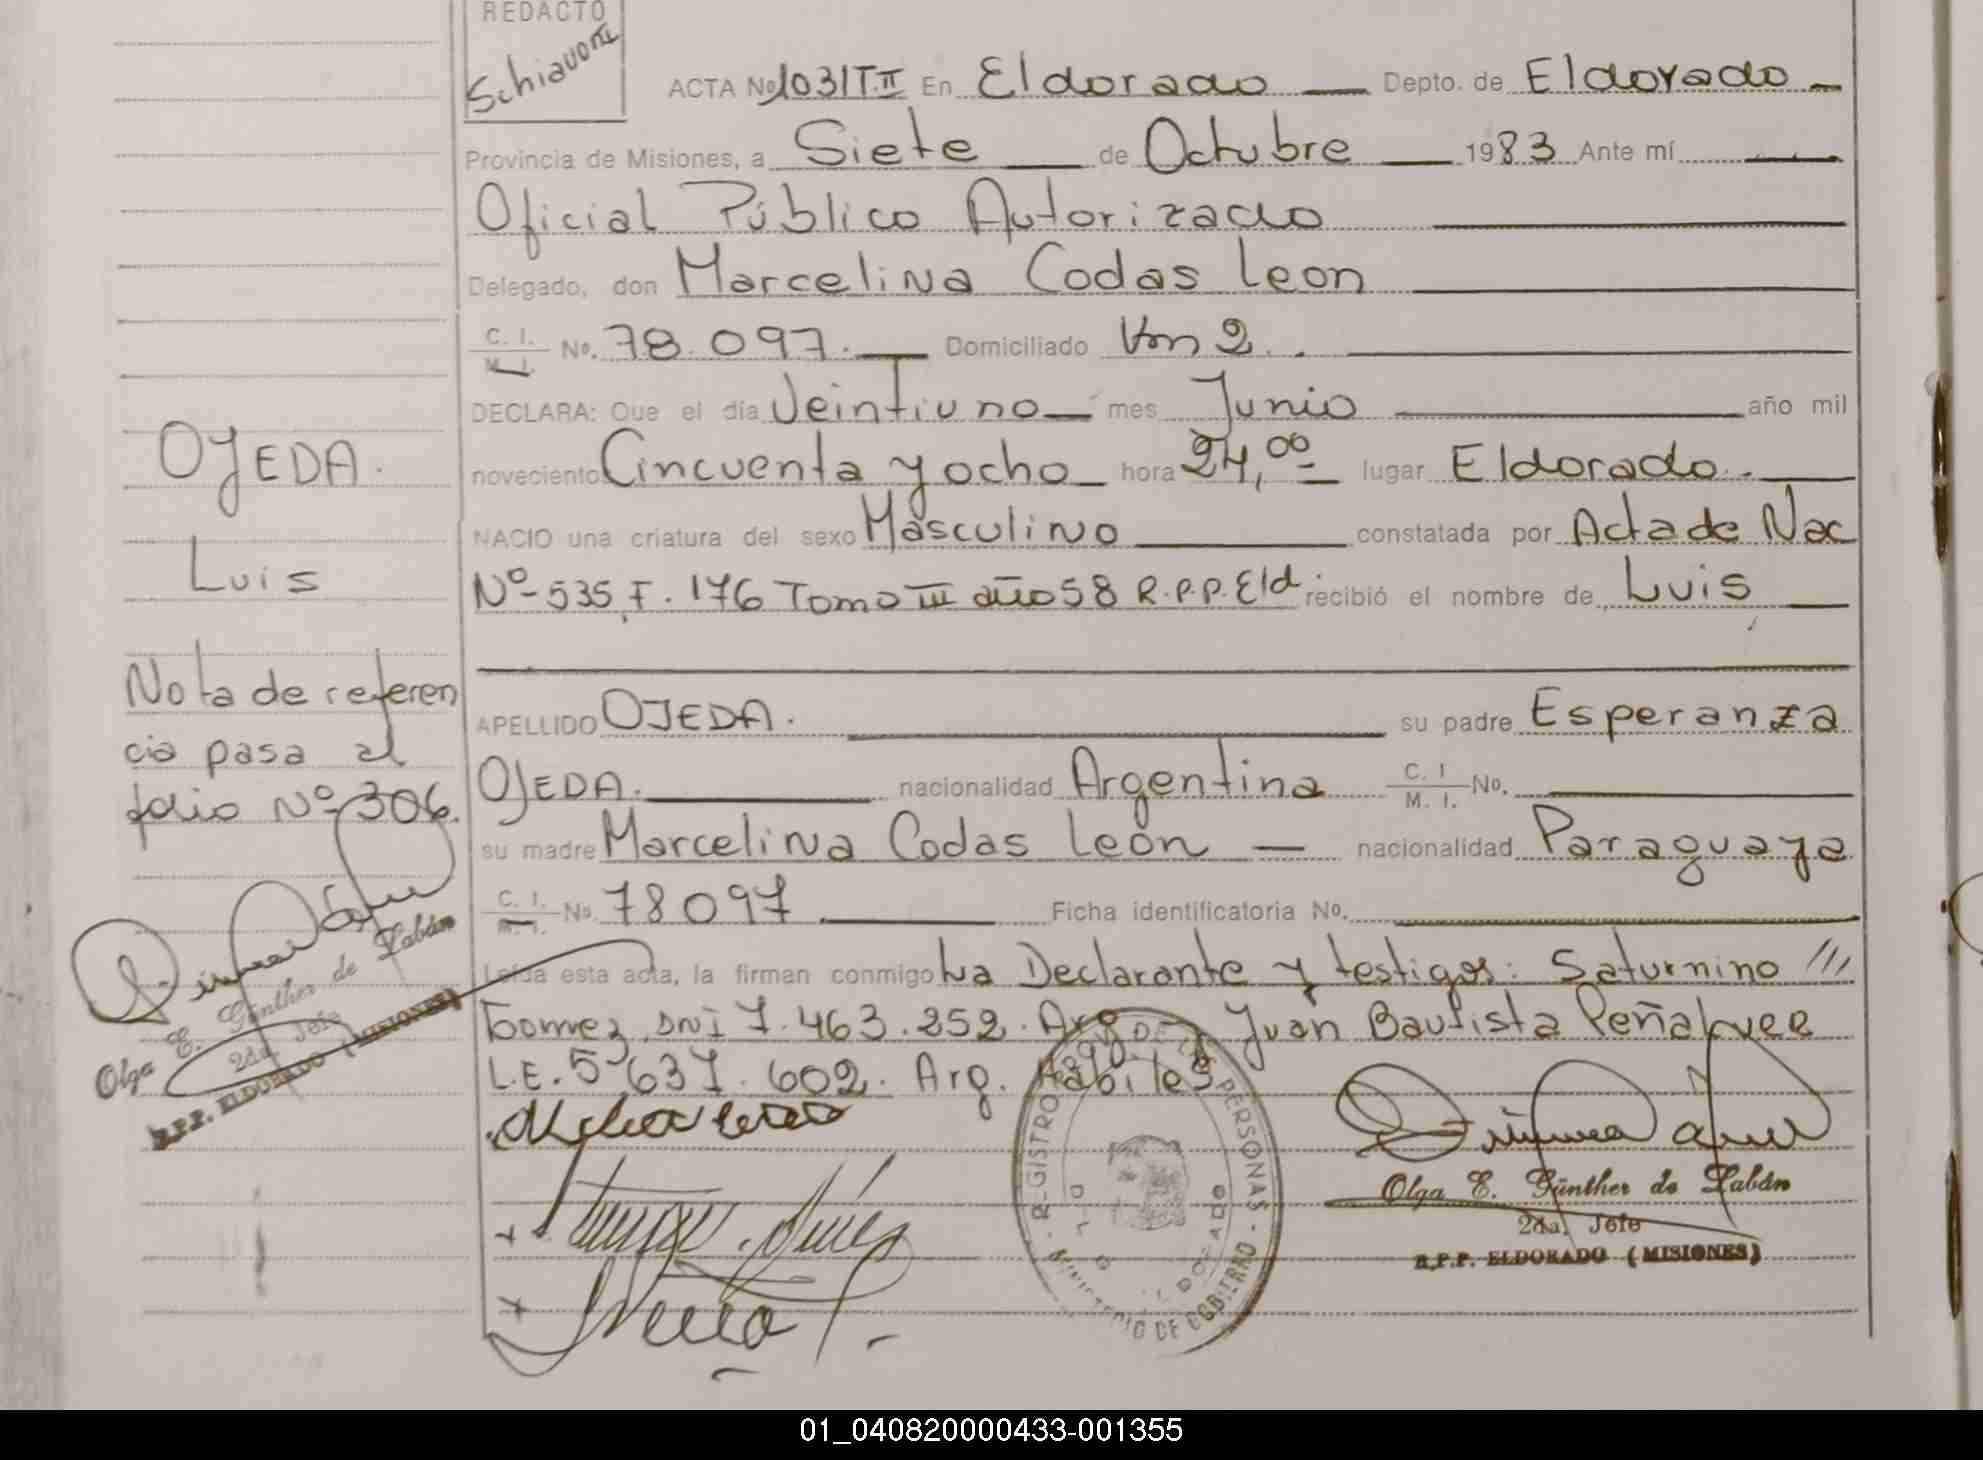 REDACTO
Schiavoni
ACTA Nº 1031 T.II En Eldorado Depto. de Eldorado
Provincia de Misiones, a Siete de Octubre 1983 Ante mí
Oficial Público Autorizado
Delegado, don Marcelina Codas Leon
C. I. M. I. No. 78.097. Domiciliado Km 2.
DECLARA: Que el día Veintiuno mes Junio año mil
noveciento Cincuenta y ocho hora 24,00 lugar Eldorado.
NACIO una criatura del sexo Masculino constatada por Acta de Nac
Nº 535 F. 176 Tomo III año 58 R.P.P. Eld. recibió el nombre de Luis
APELLIDO OJEDA. su padre Esperanza
OJEDA. nacionalidad Argentina C. I M. I. No.
su madre Marcelina Codas León nacionalidad Paraguaya
C. I. M. I. No. 78097 Ficha identificatoria No.
Leída esta acta, la firman conmigo La Declarante y testigos: Saturnino ///
Gomez, DNI 7.463.252. Arg. y Juan Bautista Peñalver
L.E. 5.637.602. Arg. Habiles
OJEDA.
Luis
Nota de referen
cia pasa al
folio Nº 306.
Olga E. Günther de Labán
2da. Jefe
R.P.P. ELDORADO (MISIONES)
REGISTRO PROV. DE LAS PERSONAS - MINISTERIO DE GOBIERNO -
ELDORADO
Olga E. Günther de Labán
2da. Jefe
R.P.P. ELDORADO (MISIONES)
01_040820000433-001355